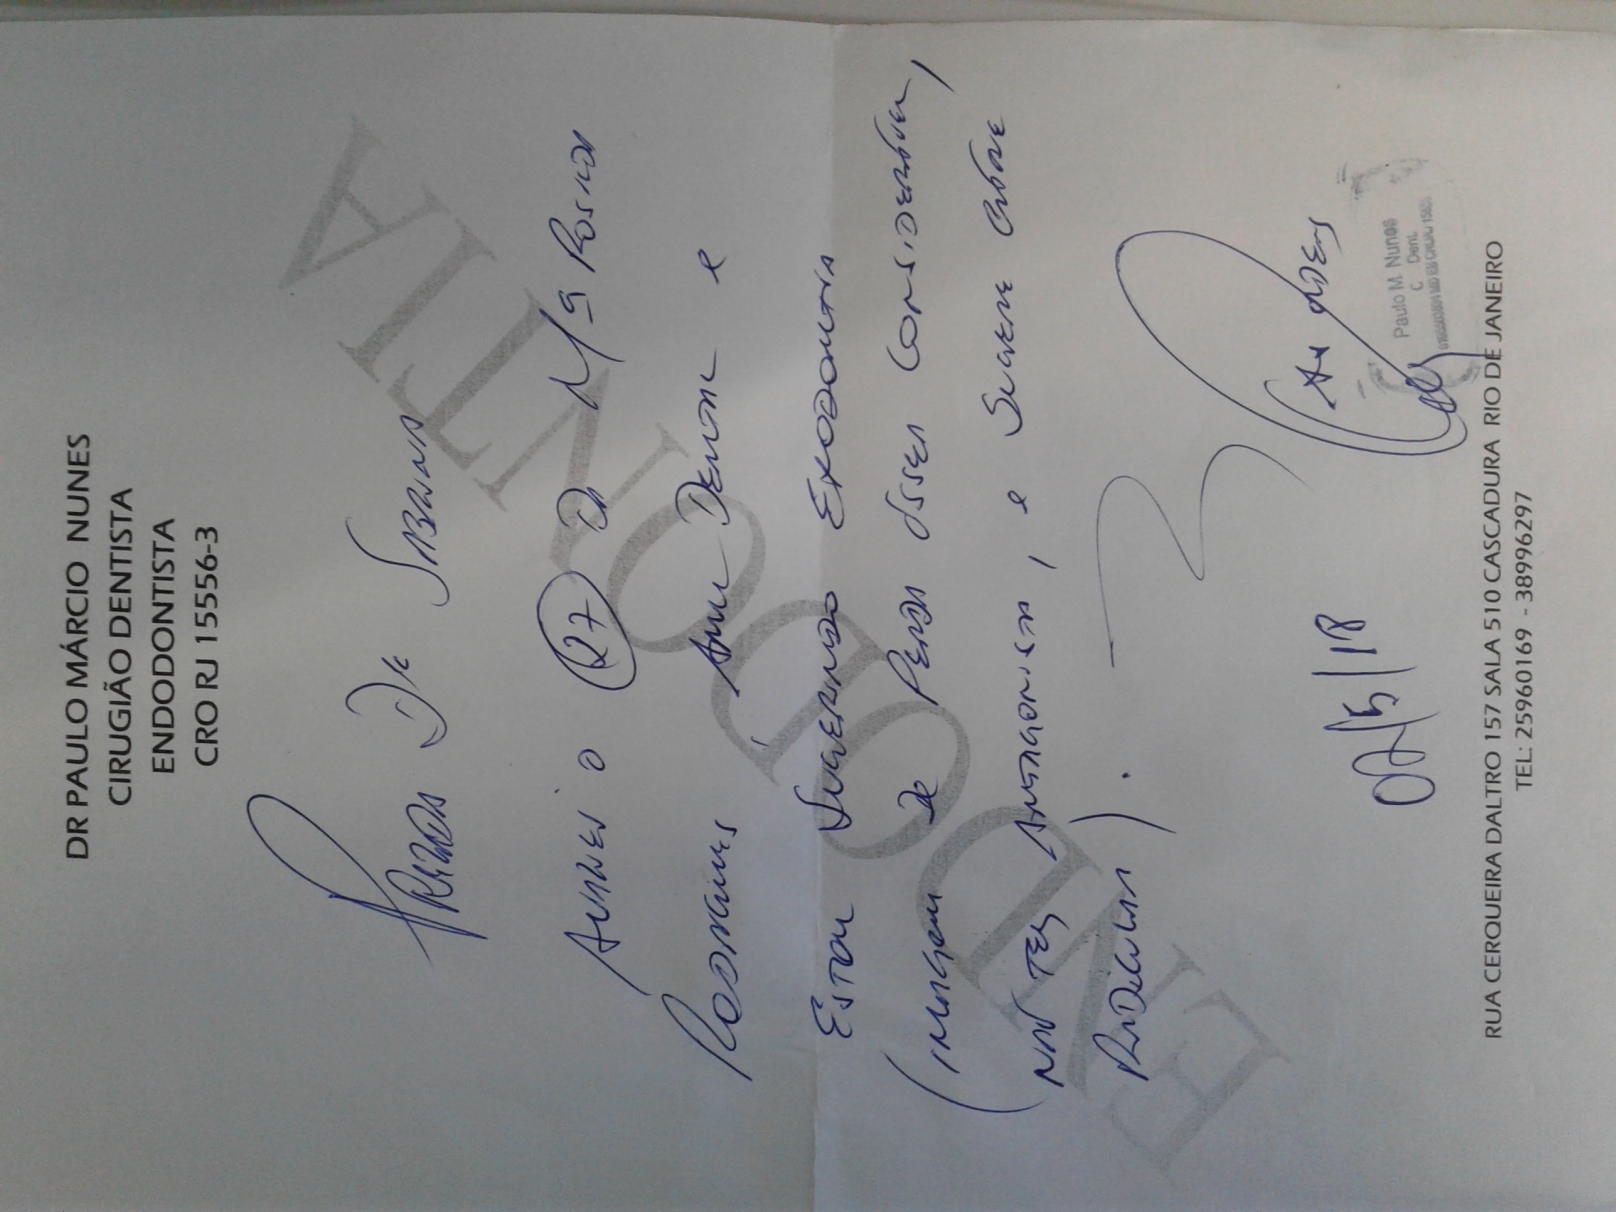 DR PAULO MÁRCIO NUNES
CIRUGIÃO DENTISTA
ENDODONTISTA
CRO RJ 15556-3
Prezada Dra
Avaliei o (27) da Mª Rosina
Rodrigues, Annu Dentn e
Estou sugerindo Exodontia
(Imagem de perda óssea considerável,
não tem antagonista, e sugere cárie
radicular).
At
02/5/18
Paulo M. Nunes
C Dent.
ENDODONTIA
RUA CERQUEIRA DALTRO 157 SALA 510 CASCADURA RIO DE JANEIRO
TEL: 25960169 - 38996297